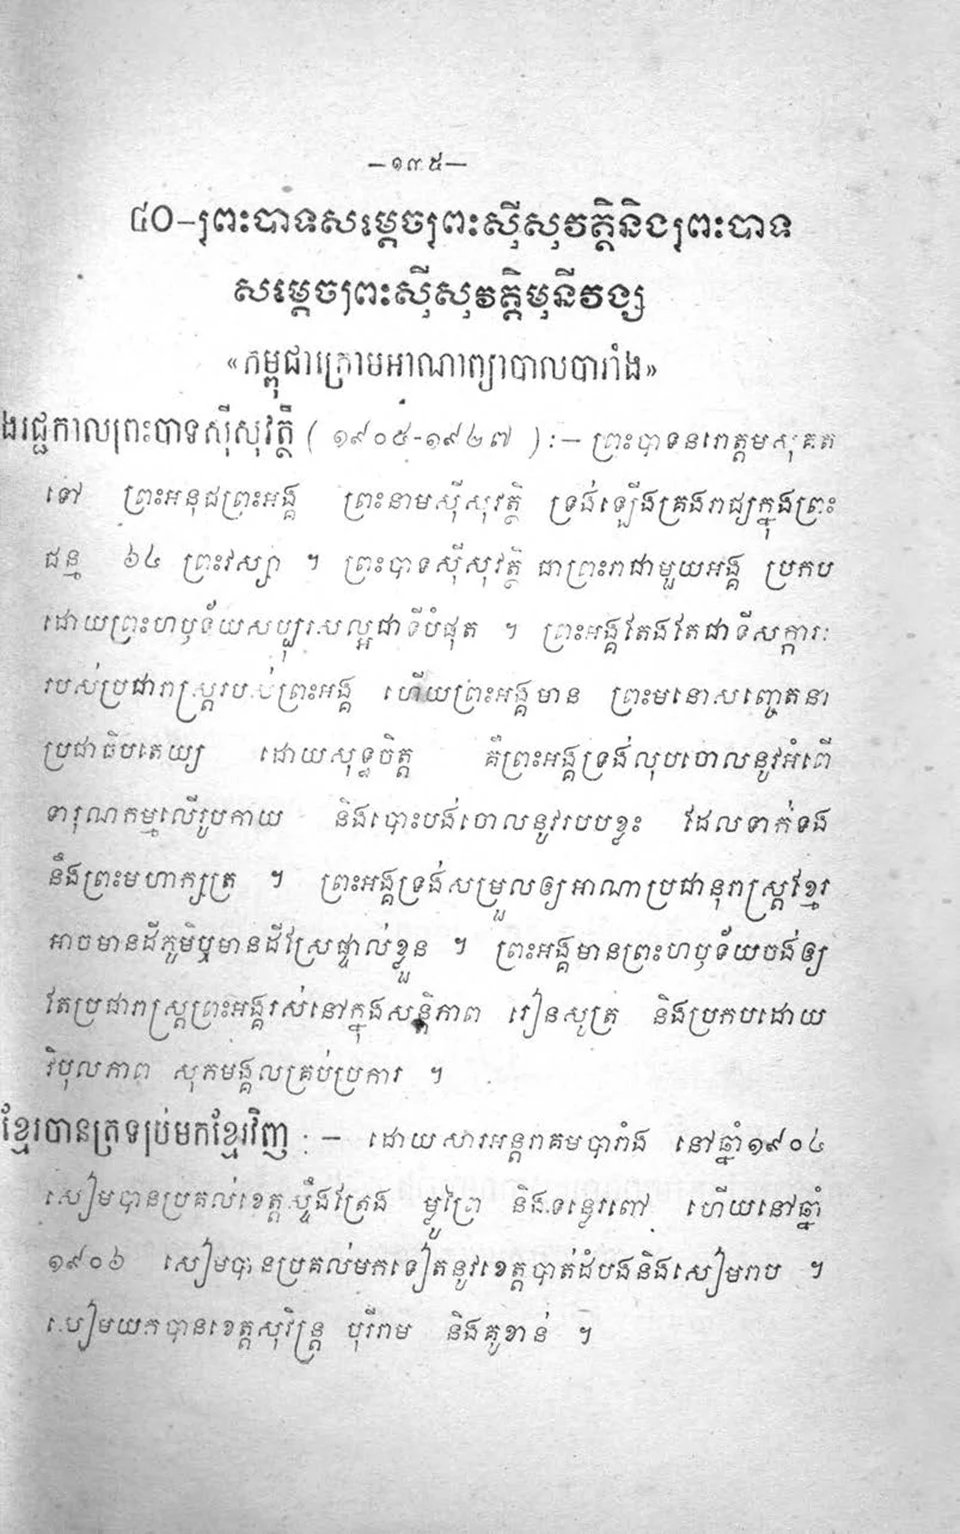 —១៣៥—
៤០-ព្រះបាទសម្តេចព្រះស៊ីសុវត្ថិនិងព្រះបាទ
សម្តេចព្រះស៊ីសុវត្ថិមុនីវង្ស
«កម្ពុជាក្រោមអាណាព្យាបាលបារាំង»
ងរជ្ជកាលព្រះបាទស៊ីសុវត្ថិ ( ១៩០៥-១៩២៧ ) : – ព្រះបាទនរោត្តមសុគត
ទៅ ព្រះអនុជព្រះអង្គ ព្រះនាមស៊ីសុវត្ថិ ទ្រង់ឡើងគ្រងរាជ្យក្នុងព្រះ
ជន្ម ៦៤ ព្រះវស្សា ។ ព្រះបាទស៊ីសុវត្ថិ ជាព្រះរាជាមួយអង្គ ប្រកប
ដោយព្រះហឫទ័យសប្បុរសល្អជាទីបំផុត ។ ព្រះអង្គតែងតែជាទីសក្ការៈ
របស់ប្រជារាស្ត្ររបស់ព្រះអង្គ ហើយព្រះអង្គមាន ព្រះមនោសញ្ចេតនា
ប្រជាធិបតេយ្យ ដោយសុទ្ធចិត្ត គឺព្រះអង្គទ្រង់លុបចោលនូវអំពើ
ទារុណកម្មលើរូបកាយ និងបោះបង់ចោលនូវរបបខ្លះ ដែលទាក់ទង
នឹងព្រះមហាក្សត្រ ។ ព្រះអង្គទ្រង់សម្រួលឲ្យអាណាប្រជានុរាស្ត្រខ្មែរ
អាចមានដីភូមិឬមានដីស្រែផ្ទាល់ខ្លួន ។ ព្រះអង្គមានព្រះហឫទ័យចង់ឲ្យ
តែប្រជារាស្ត្រព្រះអង្គរស់នៅក្នុងសន្តិភាព រៀនសូត្រ និងប្រកបដោយ
វិបុលភាព សុភមង្គលគ្រប់ប្រការ ។
ខ្មែរបានត្រឡប់មកខ្មែរវិញ : – ដោយសារអន្តរាគមបារាំង នៅឆ្នាំ១៩០៤
សៀមបានប្រគល់ខេត្តស្ទឹងត្រែង ម្លូព្រៃ និងទន្លេរពៅ ហើយនៅឆ្នាំ
១៩០៦ សៀមបានប្រគល់មកទៀតនូវខេត្តបាត់ដំបងនិងសៀមរាប ។
សៀមយកបានខេត្តសុរិន្ទ្រ បុរីរាម និងគូខាន់ ។